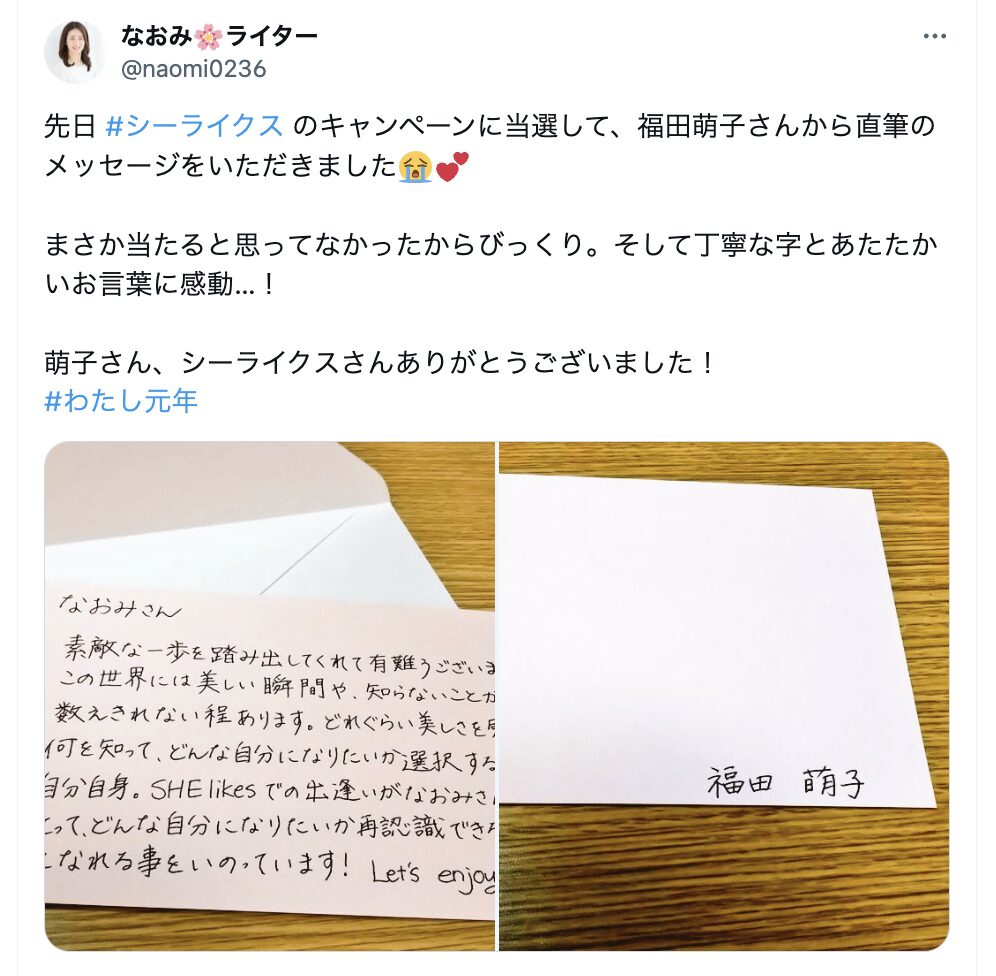 なおみ🌸ライター
@naomi0236
先日 #シーライクス のキャンペーンに当選して、福田萌子さんから直筆の
メッセージをいただきました😭💕
まさか当たると思ってなかったからびっくり。そして丁寧な字とあたたか
いお言葉に感動…！
萌子さん、シーライクスさんありがとうございました！
#わたし元年
なおみさん
素敵な一歩を踏み出してくれて有難うございま
この世界には美しい瞬間や、知らないことが
数えきれない程あります。どれぐらい美しさを
何を知って、どんな自分になりたいか選択する
自分自身。SHElikesでの出逢いがなおみさ
とって、どんな自分になりたいか再認識でき
になれる事をいのっています! Let's enjoy
福田 萌子